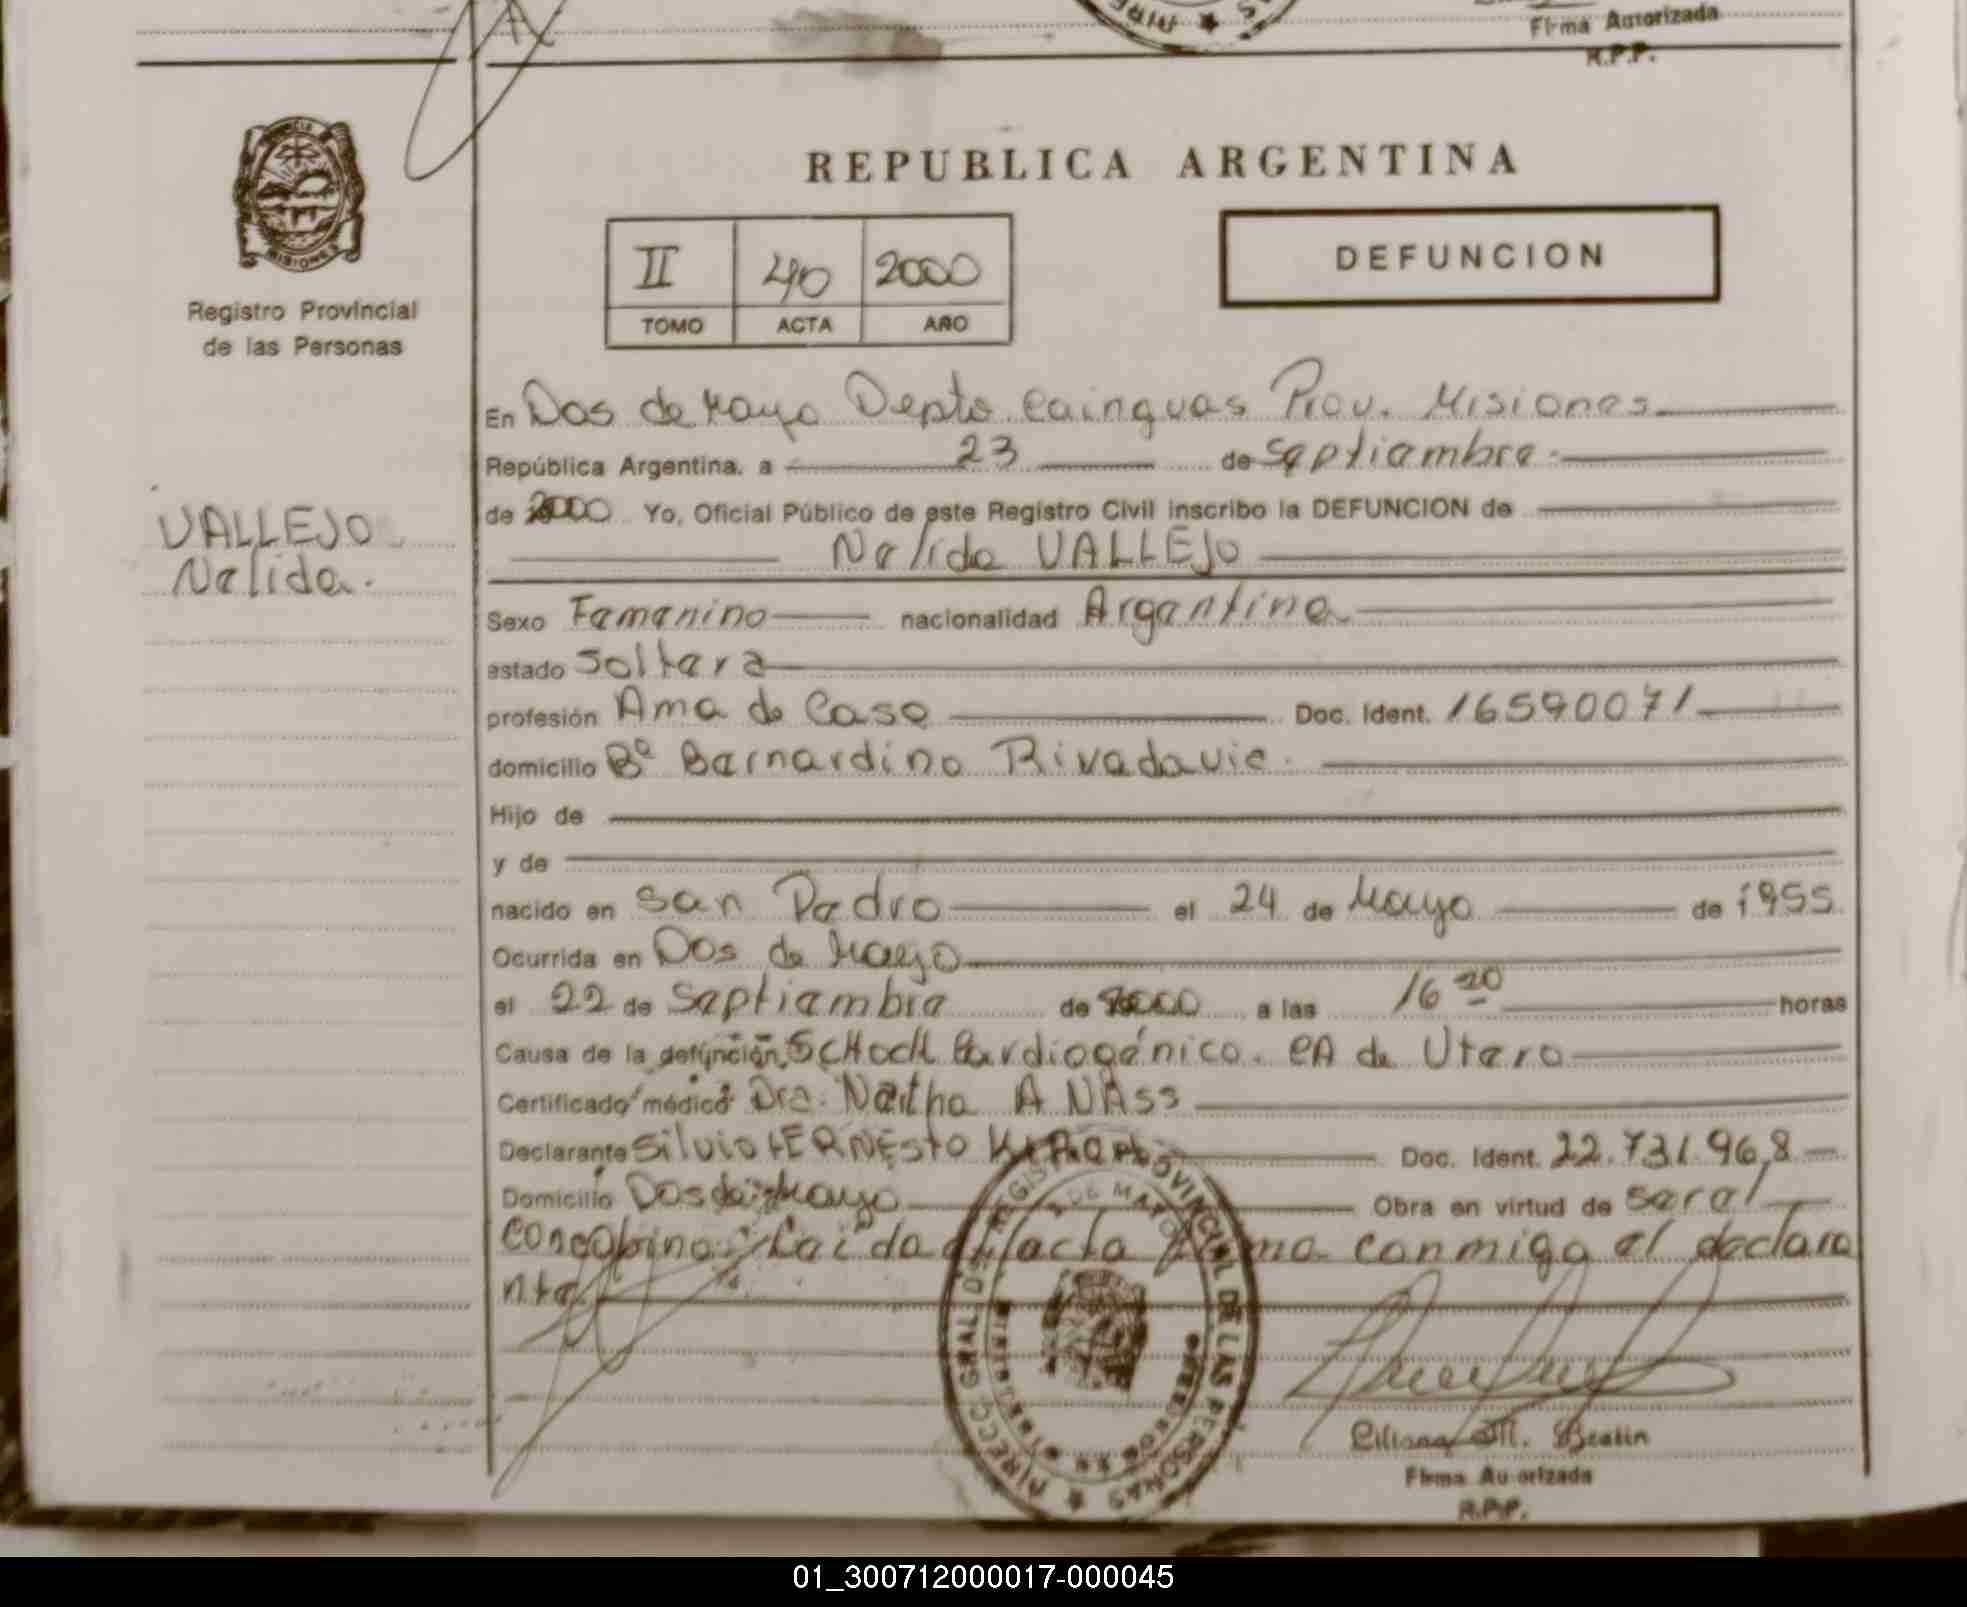 Firma Autorizada
R.P.P.
REPUBLICA ARGENTINA
MISIONES
Registro Provincial
de las Personas
II 40 2000
TOMO ACTA AÑO
DEFUNCION
En Dos de Mayo Depto Cainguas Prov. Misiones
República Argentina, a 23 de Septiembre
de 2000 Yo, Oficial Público de este Registro Civil inscribo la DEFUNCION de
VALLEJO
Nelida.
Nelida VALLEJO
Sexo Femenino nacionalidad Argentina
estado Soltera
profesión Ama de Casa Doc. Ident. 16590071
domicilio Bº Bernardino Rivadavia.
Hijo de
y de
nacido en San Pedro el 24 de Mayo de 1955
Ocurrida en Dos de Mayo
el 22 de Septiembre de 2000 a las 16 20 horas
Causa de la defunción SCHocK Cardiogénico. CA de Utero
Certificado médico Dra. Natha A NAss
Declarante Silvio ERNEsto Doc. Ident. 22.731.968
Domicilio Dos de Mayo Obra en virtud de seral
concobino. Leida el acta firma conmigo el declara
nte
DIRECC. GRAL. DEL REGISTRO PROVINCIAL DE LAS PERSONAS
2 DE MAYO
MISIONES
Liliana M.
Firma Autorizada
R.P.P.
01_300712000017-000045